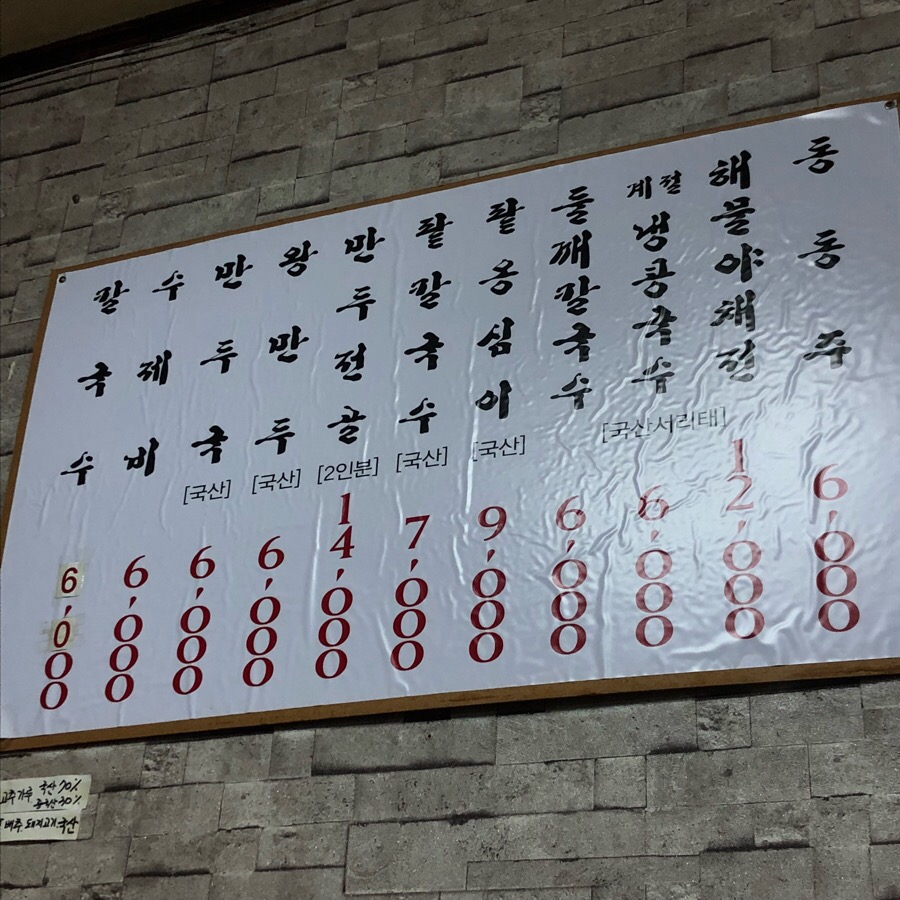 칼국수 6,000
수제비 6,000
만두국 [국산] 6,000
왕만두 [국산] 6,000
만두전골 [2인분] 14,000
팥칼국수 [국산] 7,000
팥옹심이 [국산] 9,000
들깨칼국수 6,000
계절 냉콩국수 [국산서리태] 6,000
해물야채전 12,000
동동주 6,000
고추가루 국산 70%
중국산 30%
배추.돼지고기.국산